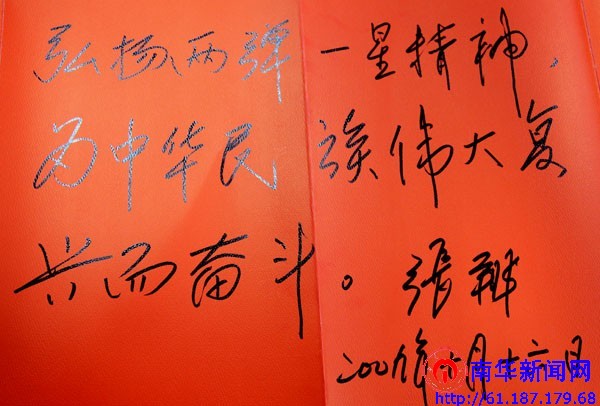 弘扬两弹一星精神，
为中华民族伟大复
兴而奋斗。 張
年 月十六日
南华新闻网
http://61.187.179.68